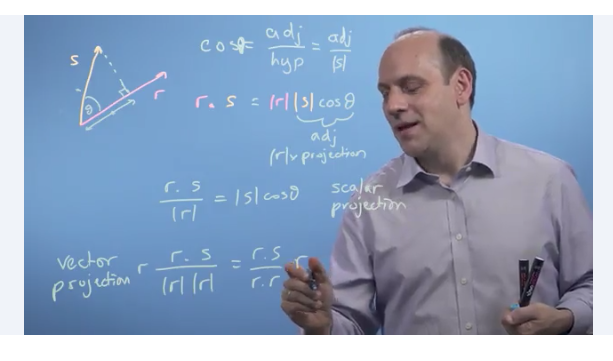 s
θ
r
cosθ = adj/hyp = adj/|s|
r. s = |r||s| cosθ
adj
|r| × projection
r. s/|r| = |s| cosθ
scalar
projection
vector
projection
r r. s/|r| |r| = r.s/r.r r